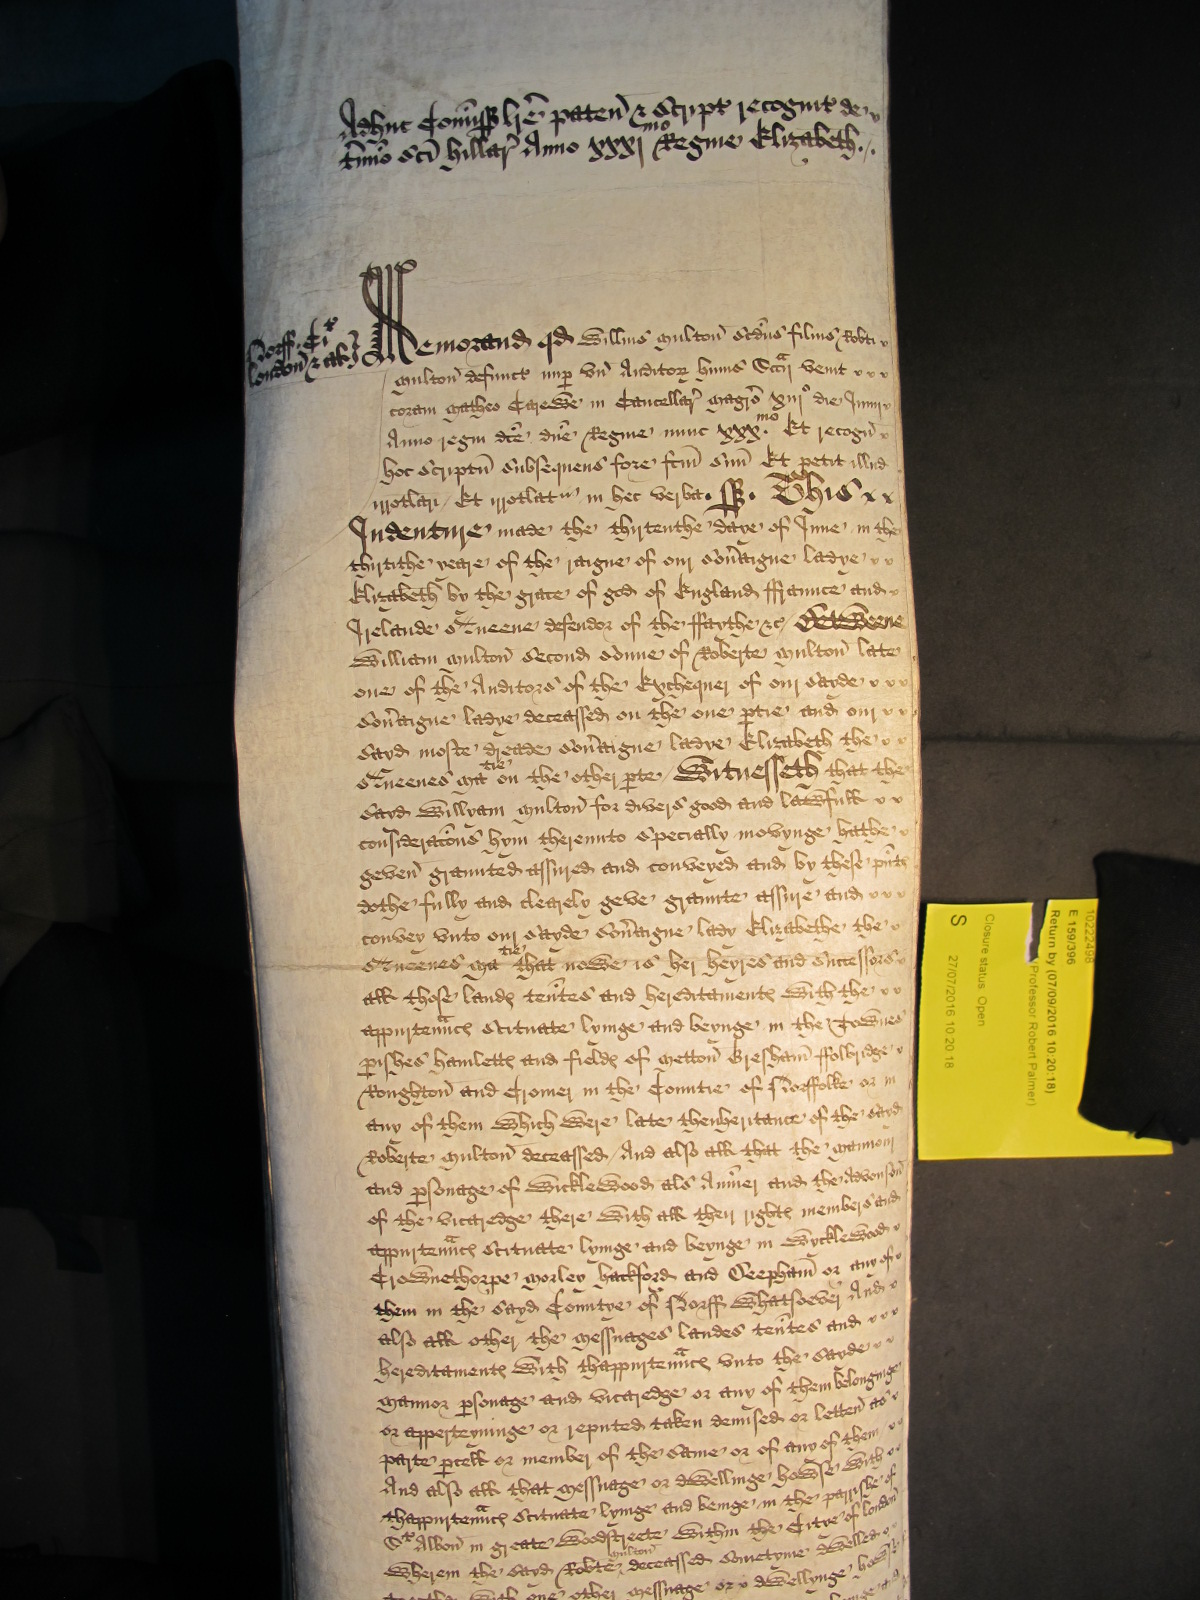 Adhuc Comiss lre paten & Script recognit de
tmio sci hillar Anno xxxj mo Regine Elizabeth
Norff. Ci
London & al
Memorand qd Willms Multon Scdus filius Robti
Multon defunct nup vn Auditor huius Sccii venit
coram Matheo Carewe in Cancellar magro xiij o die Junii
Anno regni dce dne Regine nunc xxx mo Et recogn
hoc Scriptu subsequens fore fcm suu Et petit illud
irrotlari Et irrotlat in hec verba. ss. This
Indenture made the thirtenthe daye of June in the
thirtithe yeare of the raigne of our Soveraigne ladye
Elizabeth by the grace of god of England ffraunce and
Irelande Queene defendor of the ffaythe &c Betweene
William Multon second sonne of Roberte Multon late
one of the Auditors of the Exchequer of our sayde
Soveraigne ladye deceassed on the one ptie and our
sayd moste dreade Soveraigne ladye Elizabeth the
Queenes Ma tie on the other pte Witnesseth that the
sayd Willyam Multon for divers good and lawfull
consideracons hym thereunto specially movynge hathe
geven graunted assured and conveyed and by these pnts
dothe fully and clearely geve graunte assure and
convey unto our sayde Soveraigne lady Elizabethe the
Queenes Ma tie that nowe is her heyres and successors
all those lands tentes and hereditaments with the
appurtennces scituate lyinge and beynge in the Townes
pishes hamletts and fields of Metton Gresham ffelbridge
Roughton and Cromer in the Countie of Norffolke or in
any of them which were late thenheritance of the sayd
Roberte Multon deceassed And also all that the mannor
and psonage of Wicklewood als Amner and the Advouson
of the vicaredge there with all their rights members and
appurtennces scituate lyinge and beynge in Wycklewood
Crownethorpe Morley hackford and Deepham or any of
them in the sayd Countye of Norff whatsoever And
also all other the messuages landes tentes and
hereditaments with thappurtennces unto the sayde
mannor psonage and vicaredge or any of them belonginge
or apperteyninge or reputed taken demised or letten as
parte pcell or member of the same or of any of them
And also all that messuage or dwellinge howse with
thappurtennces scituate lyinge and beinge in the parrishe of
St Albon in greate Woodstreete within the Citye of london
wherein the sayd Robte Multon deceassed sometyme dwelled
with one other messuage or dwellynge
10222498
E 159/396
Return by (07/09/2016 10:20:18)
Professor Robert Palmer)
Closure status: Open
S
27/07/2016 10:20:18